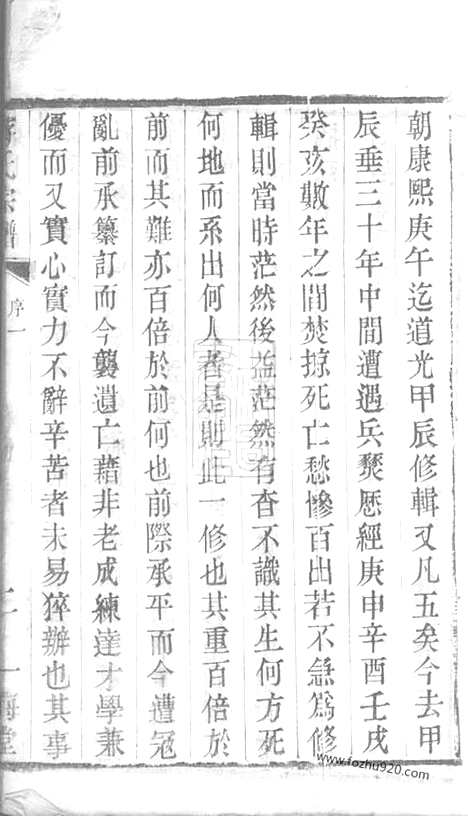 朝康熙庚午迄道光甲辰修輯又凡五矣今去甲
辰垂三十年中間遭遇兵燹歷經庚申辛酉壬戌
癸亥數年之間焚掠死亡愁慘百出若不急爲修
輯則當時茫然後益茫然有杳不識其生何方死
何地而系出何人者是則此一修也其重百倍於
前而其難亦百倍於前何也前際承平而今遭寇
亂前承纂訂而今襲遺亡藉非老成練達才學兼
優而又實心實力不辭辛苦者未易猝辦也其事
氏宗譜
序一
www.fozhu920.com